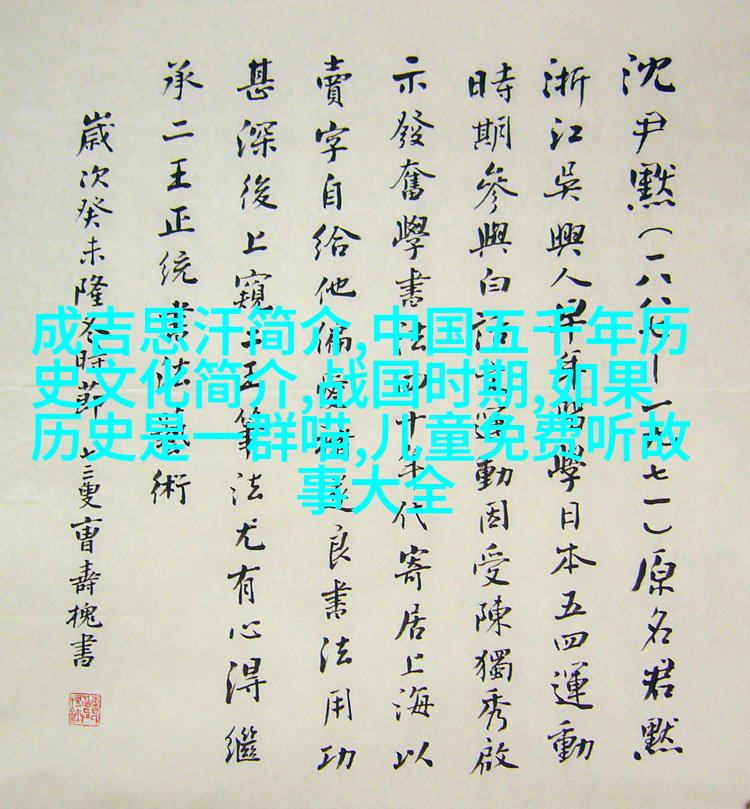 沈尹默（一八八七—一九七一）原名君默
浙江吳興人早年留學日本五四運動
時期參與白話文運動因受陳獨秀啟
示發奮學書法四十年代寄居上海以
賣字自給他偏愛褚遂良書法用功
甚深後上窺二王筆法尤有心得繼
承二王正統書法藝術
歲次癸未隆冬時節曹壽槐書
成吉思汗简介,中国五千年历
史文化简介,战国时期,如果
历史是一群喵,儿童免费听故
事大全